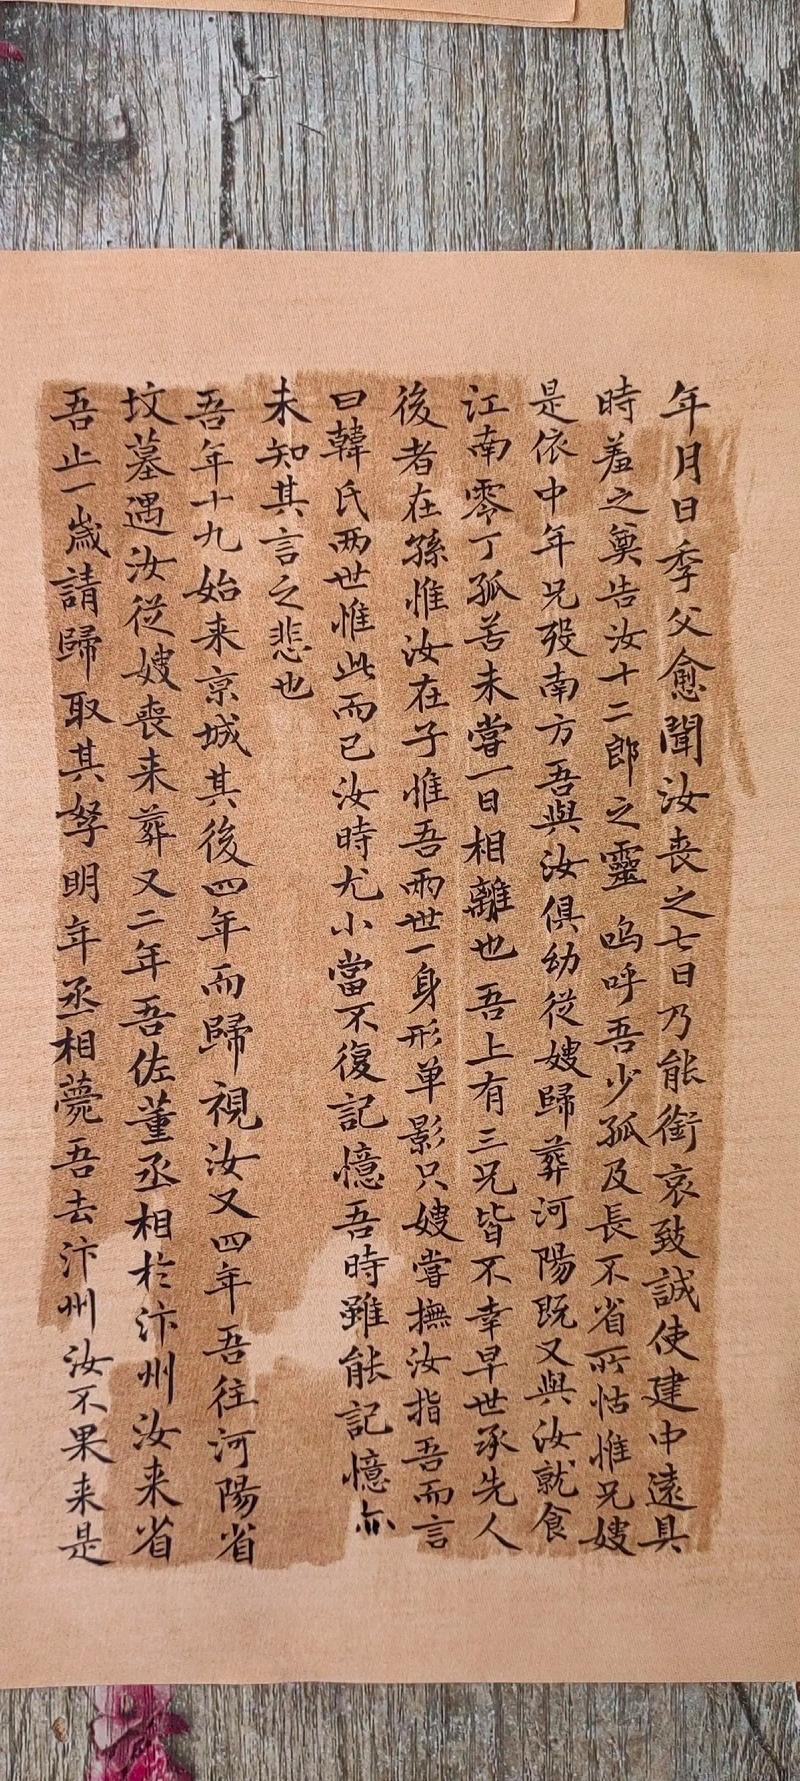 年月日季父愈聞汝喪之七日乃能銜哀致誠使建中遠具
時羞之奠告汝十二郎之靈嗚呼吾少孤及長不省所怙惟兄嫂
是依中年兄歿南方吾與汝俱幼從嫂歸葬河陽既又與汝就食
江南零丁孤苦未嘗一日相離也吾上有三兄皆不幸早世承先人
後者在孫惟汝在子惟吾兩世一身形单影只嫂嘗撫汝指吾而言
曰韓氏两世惟此而已汝時尤小當不復記憶吾時雖能記憶亦
未知其言之悲也
吾年十九始来京城其後四年而歸視汝又四年吾往河陽省
坟墓遇汝從嫂喪来葬又二年吾佐董丞相於汴州汝来省
吾止一歲請歸取其孥明年丞相薨吾去汴州汝不果来是